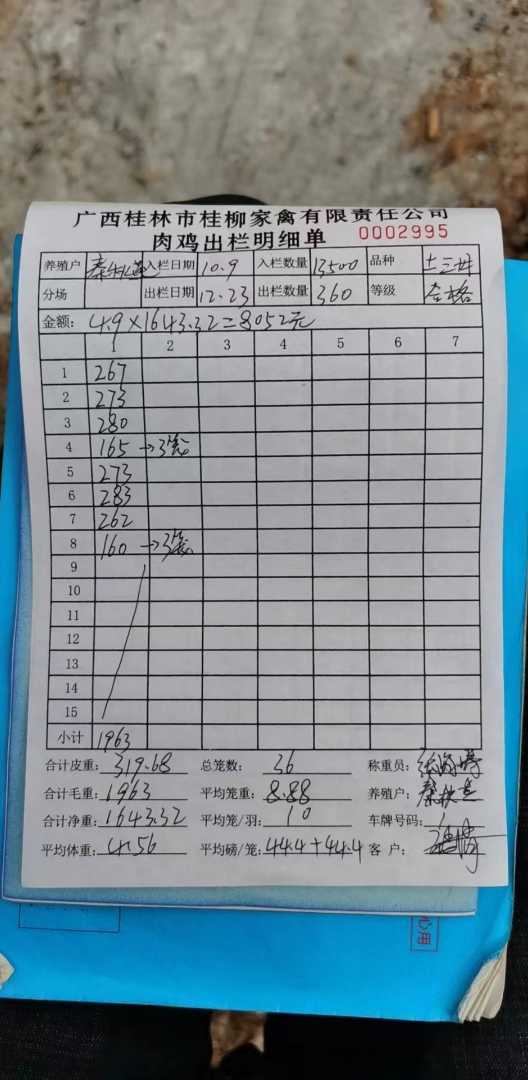 广西桂林市桂柳家禽有限责任公司
肉鸡出栏明细单 0002995
养殖户 入栏日期 10.9 入栏数量 13500 品种 土三
分场 出栏日期 12.23 出栏数量 360 等级 合格
金额: 4.9×1643.32=8052元
1 2 3 4 5 6 7
1 267
2 273
3 280
4 165→3笼
5 273
6 283
7 262
8 160→3笼
9
10
11
12
13
14
15
小计 1963
合计皮重: 319.68 总笼数: 36 称重员:
合计毛重: 1963 平均笼重: 8.88 养殖户:
合计净重: 1643.32 平均笼/羽: 10 车牌号码:
平均体重: 4.56 平均磅/笼: 44.4+44.4 客户:
心用